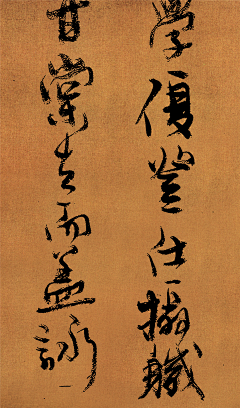 學優登仕攝職
甘棠去而益詠